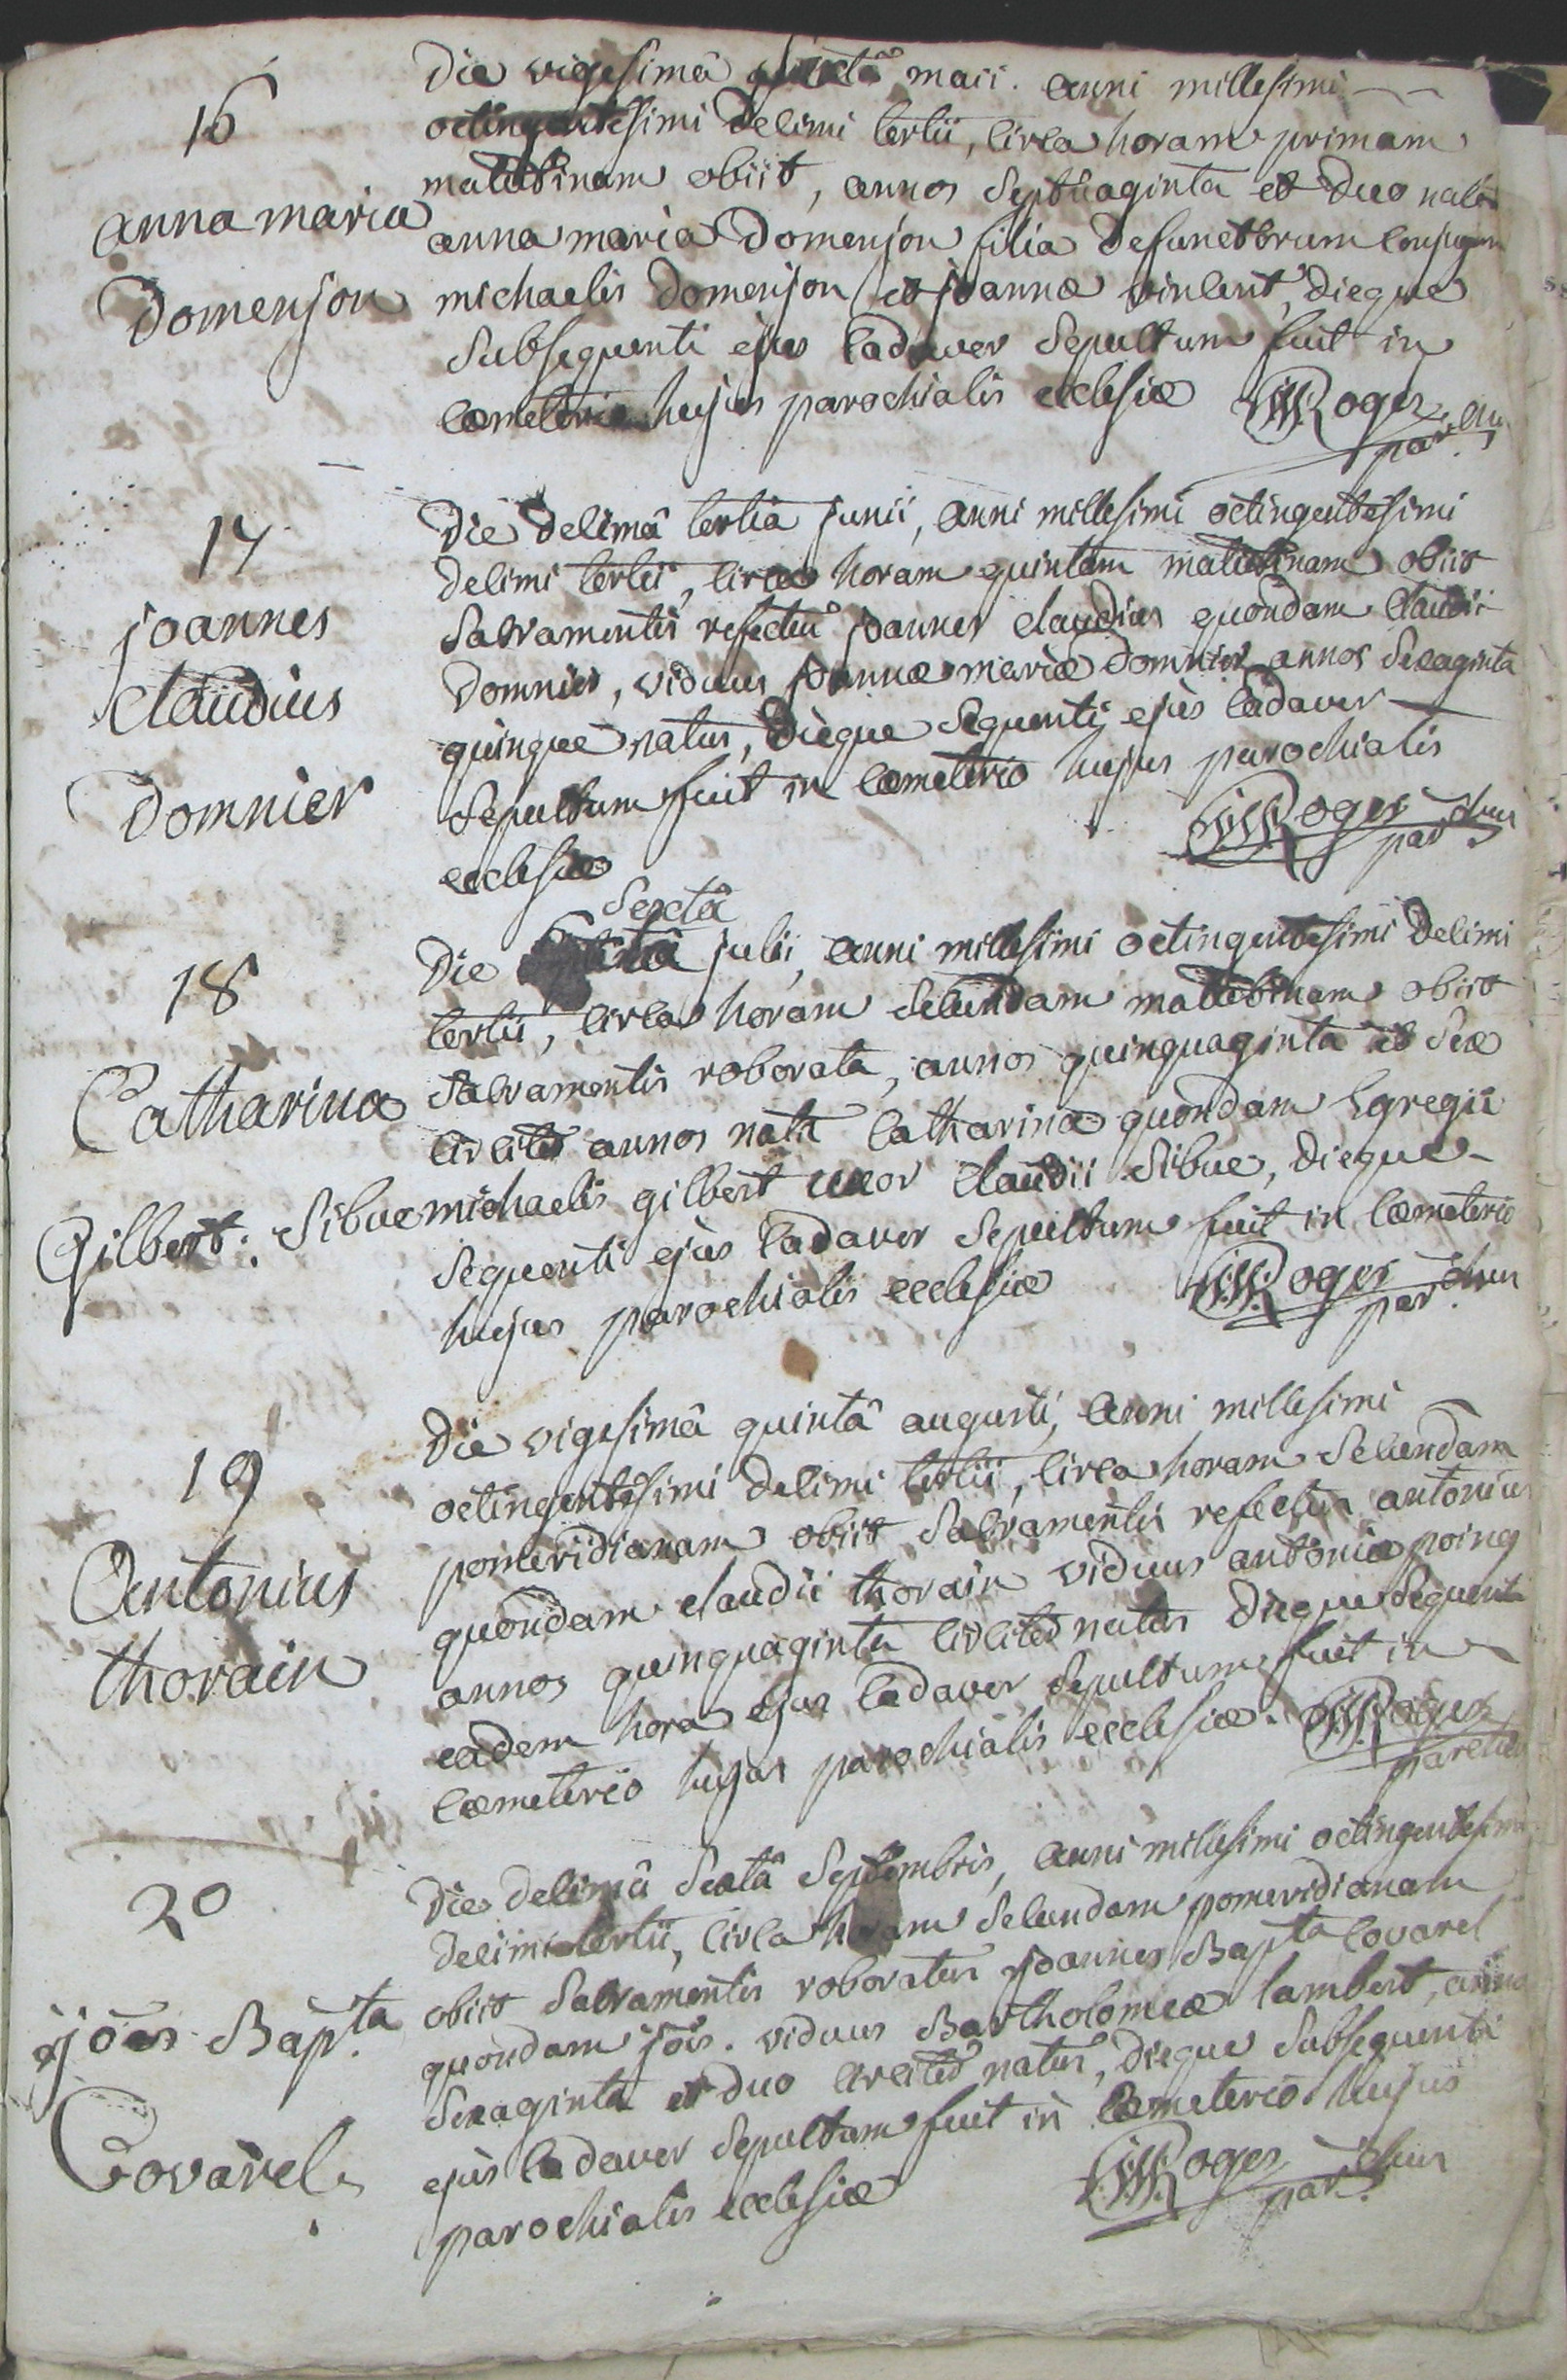 16
anna maria
Domenjon
Die vigesimâ maii. anni millesimi
octingentesimi decimi tertii, circa horam primam
matutinam obiit, annos septuaginta et duo nata
anna maria Domenjon filia defunctorum conjugum
michaelis Domenjon et joannæ vincent, dieque
subsequenti ejus cadaver sepultum fuit in
cœmeterio hujus parochialis ecclesiæ Roger
par.
17
joannes
claudius
Domnier
Die decimâ tertia junii, anni millesimi octingentesimi
decimi tertii, circa horam quintam matutinam obiit
sacramentis refectus joannes claudius quondam claudii
Domnier, viduus joannæ mariæ Domnier annos sexaginta
quinque natus, dieque sequenti ejus cadaver
sepultum fuit in cœmeterio hujus parochialis
ecclesiæ Roger
par.chus
18
Catharina
Gilbert: Sibue
sextâ
Die julii, anni millesimi octingentesimi decimi
tertii, circa horam secundam matutinam obiit
sacramentis roborata, annos quinquaginta et sex
circiter annos nata catharina quondam Egregii
michaelis gilbert uxor claudii sibue, dieque
sequenti ejus cadaver sepultum fuit in cœmeterio
hujus parochialis ecclesiæ Roger
par.chus
19
Antonius
thorain
Die vigesimâ quintâ augusti, anni millesimi
octingentesimi decimi tertii, circa horam secundam
pomeridianam obiit sacramentis refectus antonius
quondam claudii thorain viduus antoniæ poing
annos quinquaginta circiter natus dieque sequenti
eadem hora ejus cadaver sepultum fuit in
cœmeterio hujus parochialis ecclesiæ. Roger
parchus
20
jōes Bap.ta
Covarel
Die decimâ sextâ septembris, anni millesimi octingentesimi
decimi tertii, circa horam secundam pomeridianam
obiit sacramentis roboratus joannes Bapta covarel
quondam jōis. viduus Bartholomeæ lambert, annos
sexaginta et duo circiter natus, dieque subsequenti
ejus cadaver sepultum fuit in cœmeterio hujus
parochialis ecclesiæ Roger
par.chus